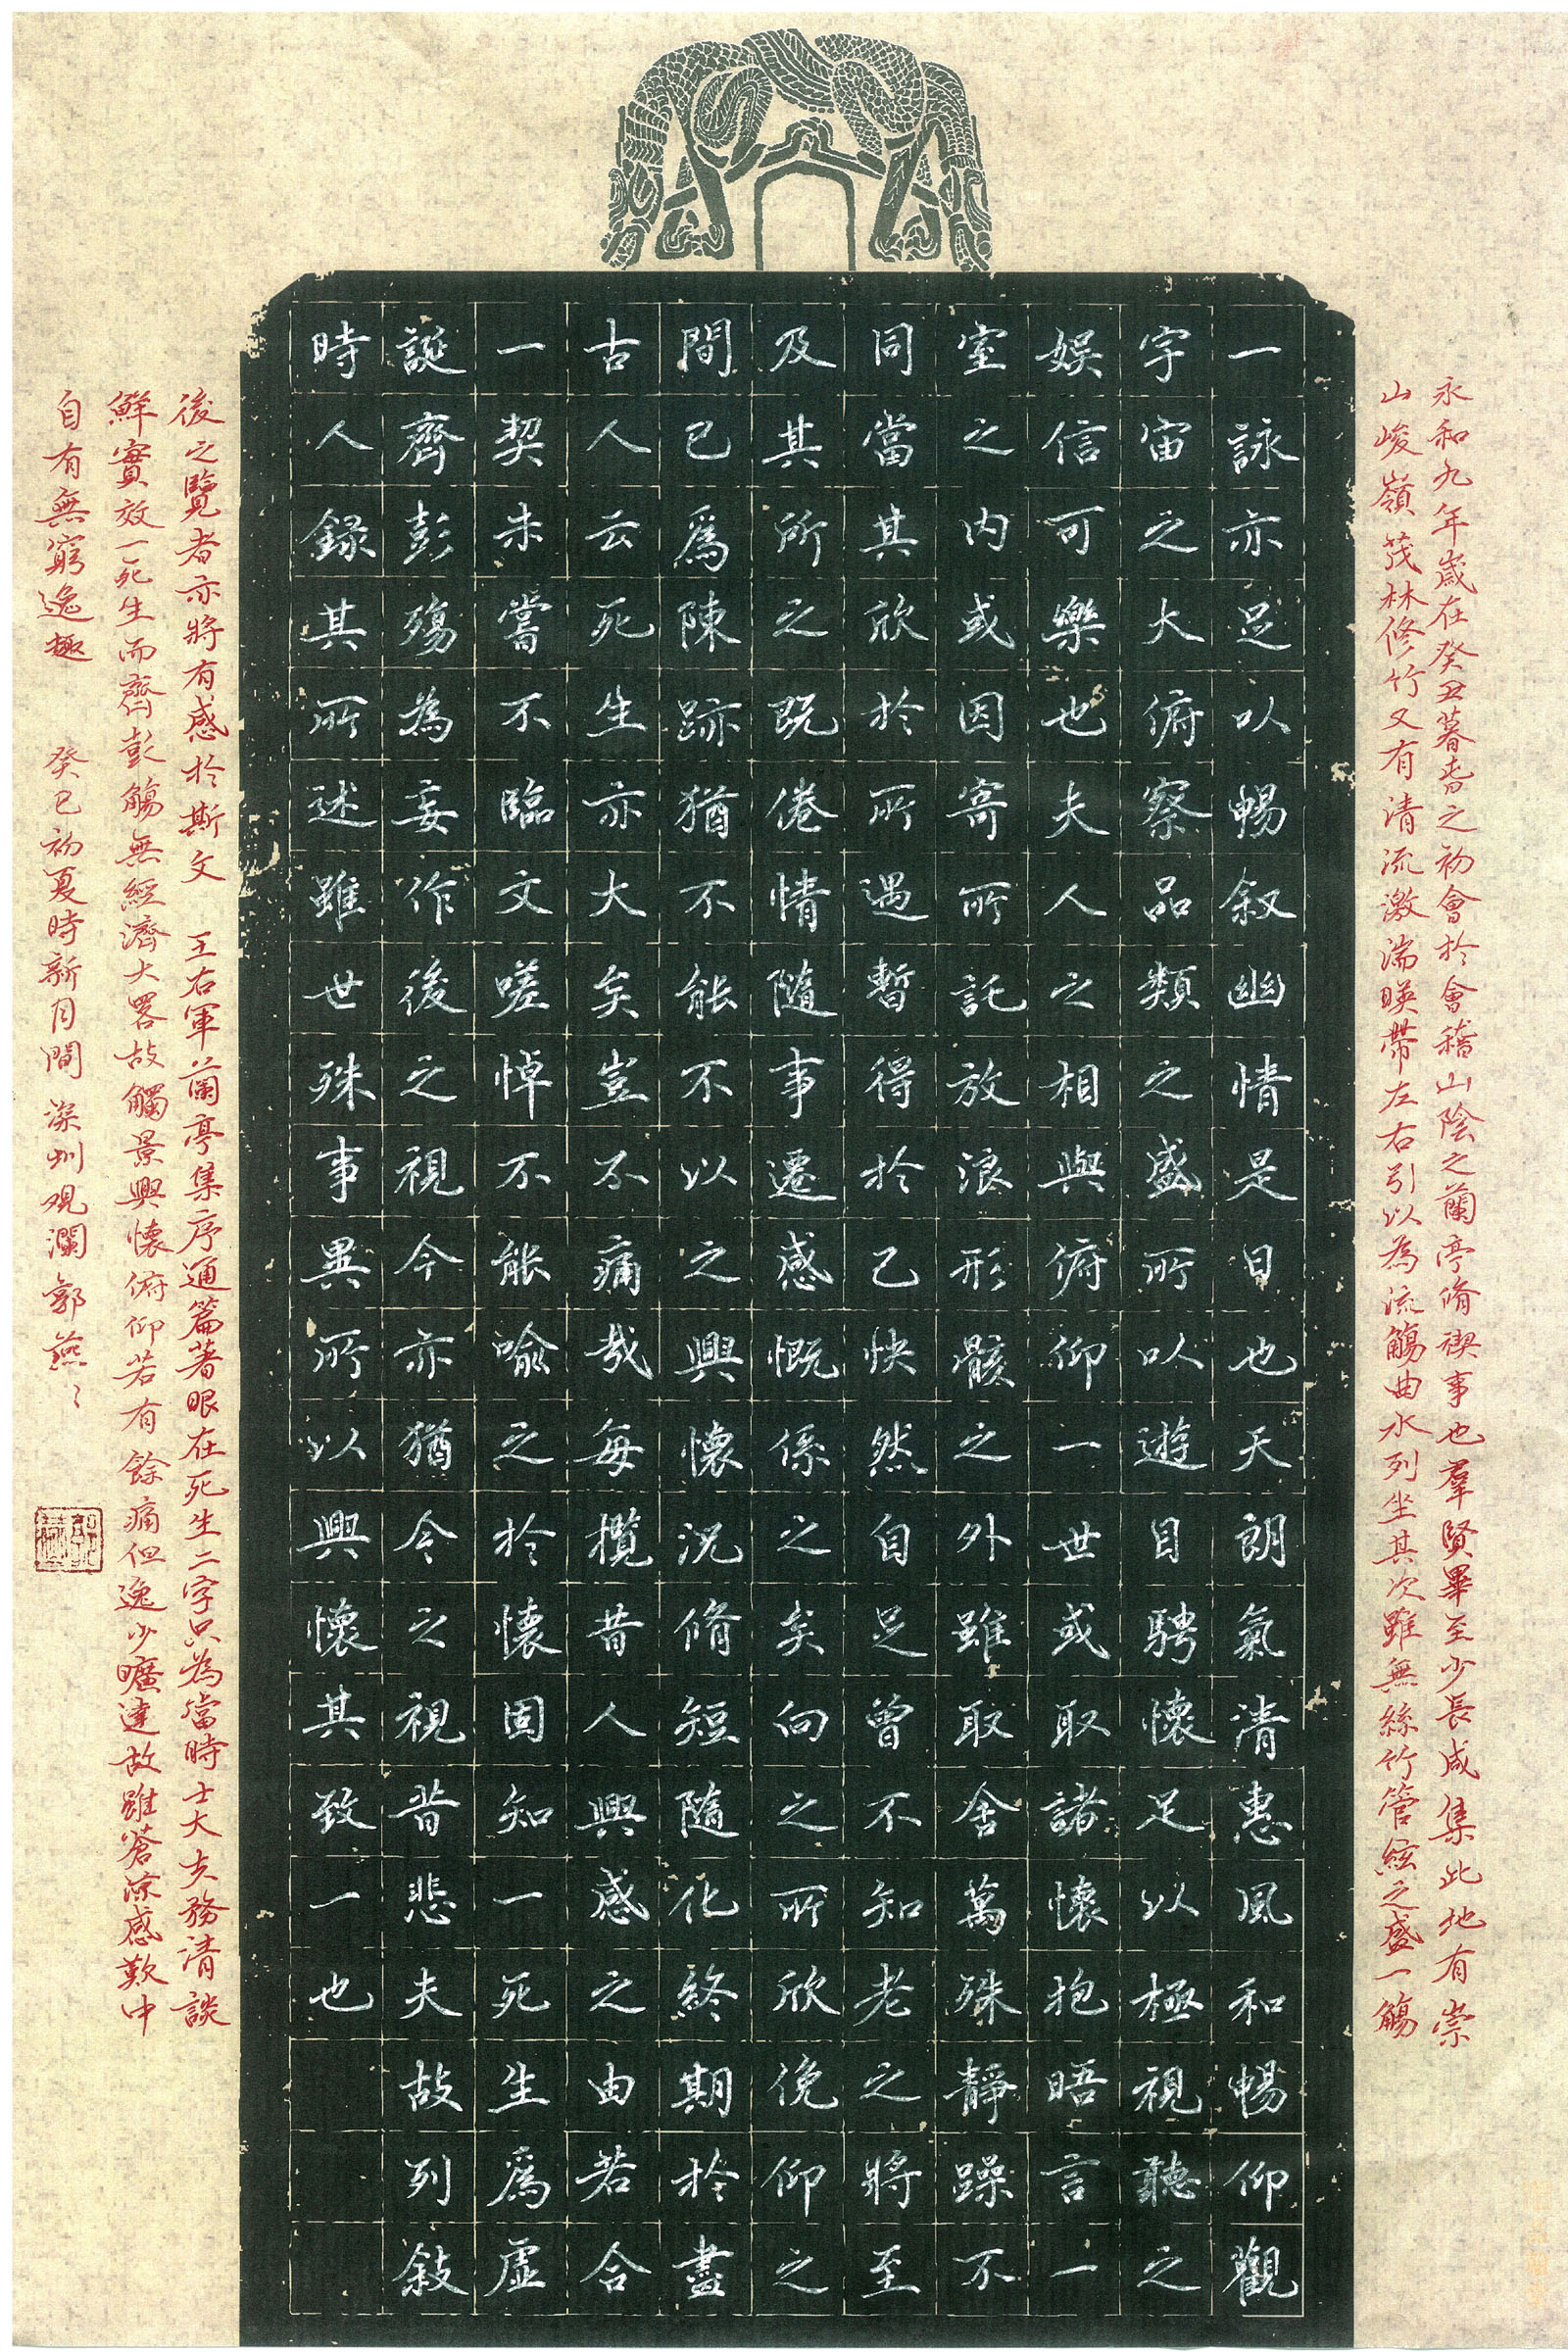 永和九年歲在癸丑暮春之初會於會稽山陰之蘭亭脩禊事也羣賢畢至少長咸集此地有崇
山峻嶺茂林修竹又有清流激湍暎帶左右引以為流觴曲水列坐其次雖無絲竹管絃之盛一觴
一詠亦足以暢叙幽情是日也天朗氣清惠風和暢仰觀
宇宙之大俯察品類之盛所以遊目騁懷足以極視聽之
娛信可樂也夫人之相與俯仰一世或取諸懷抱晤言一
室之内或因寄所託放浪形骸之外雖取舍萬殊靜躁不
同當其欣於所遇暫得於己快然自足曾不知老之將至
及其所之既倦情隨事遷感慨係之矣向之所欣俛仰之
間已爲陳跡猶不能不以之興懷況脩短隨化終期於盡
古人云死生亦大矣豈不痛哉每攬昔人興感之由若合
一契未嘗不臨文嗟悼不能喻之於懷固知一死生爲虛
誕齊彭殤為妄作後之視今亦猶今之視昔悲夫故列敍
時人錄其所述雖世殊事異所以興懷其致一也
後之覽者亦將有感於斯文 王右軍蘭亭集序通篇著眼在死生二字只為當時士大夫務清談
鮮實效一死生而齊彭觴無經濟大畧故觸景興懷俯仰若有餘痛但逸少曠達故雖蒼涼感歎中
自有無窮逸趣 癸巳初夏時新月間深圳观瀾郭燕〻